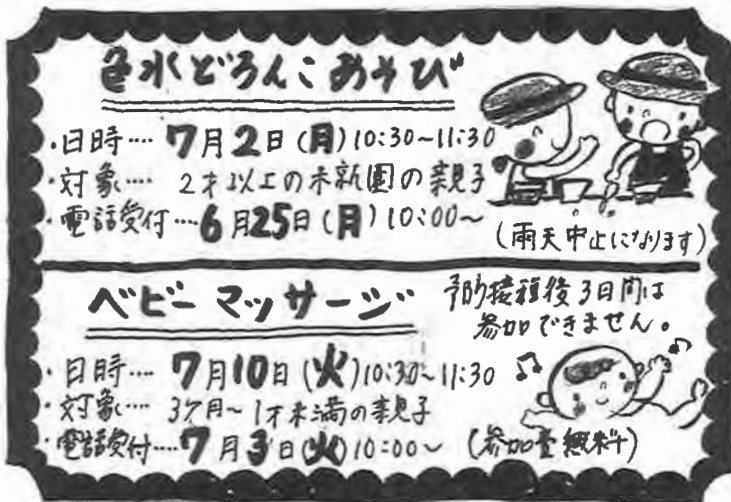 色水どろんこあそび
・日時‥‥7月2日(月)10:30~11:30
・対象‥‥2才以上の未就園の親子
・電話受付‥‥6月25日(月)10:00~
(雨天中止になります)
ベビーマッサージ
予防接種後3日間は
参加できません。
・日時‥‥7月10日(火)10:30~11:30
・対象‥‥3ケ月~1才未満の親子
・電話受付‥‥7月3日(火)10:00~
(参加費無料)